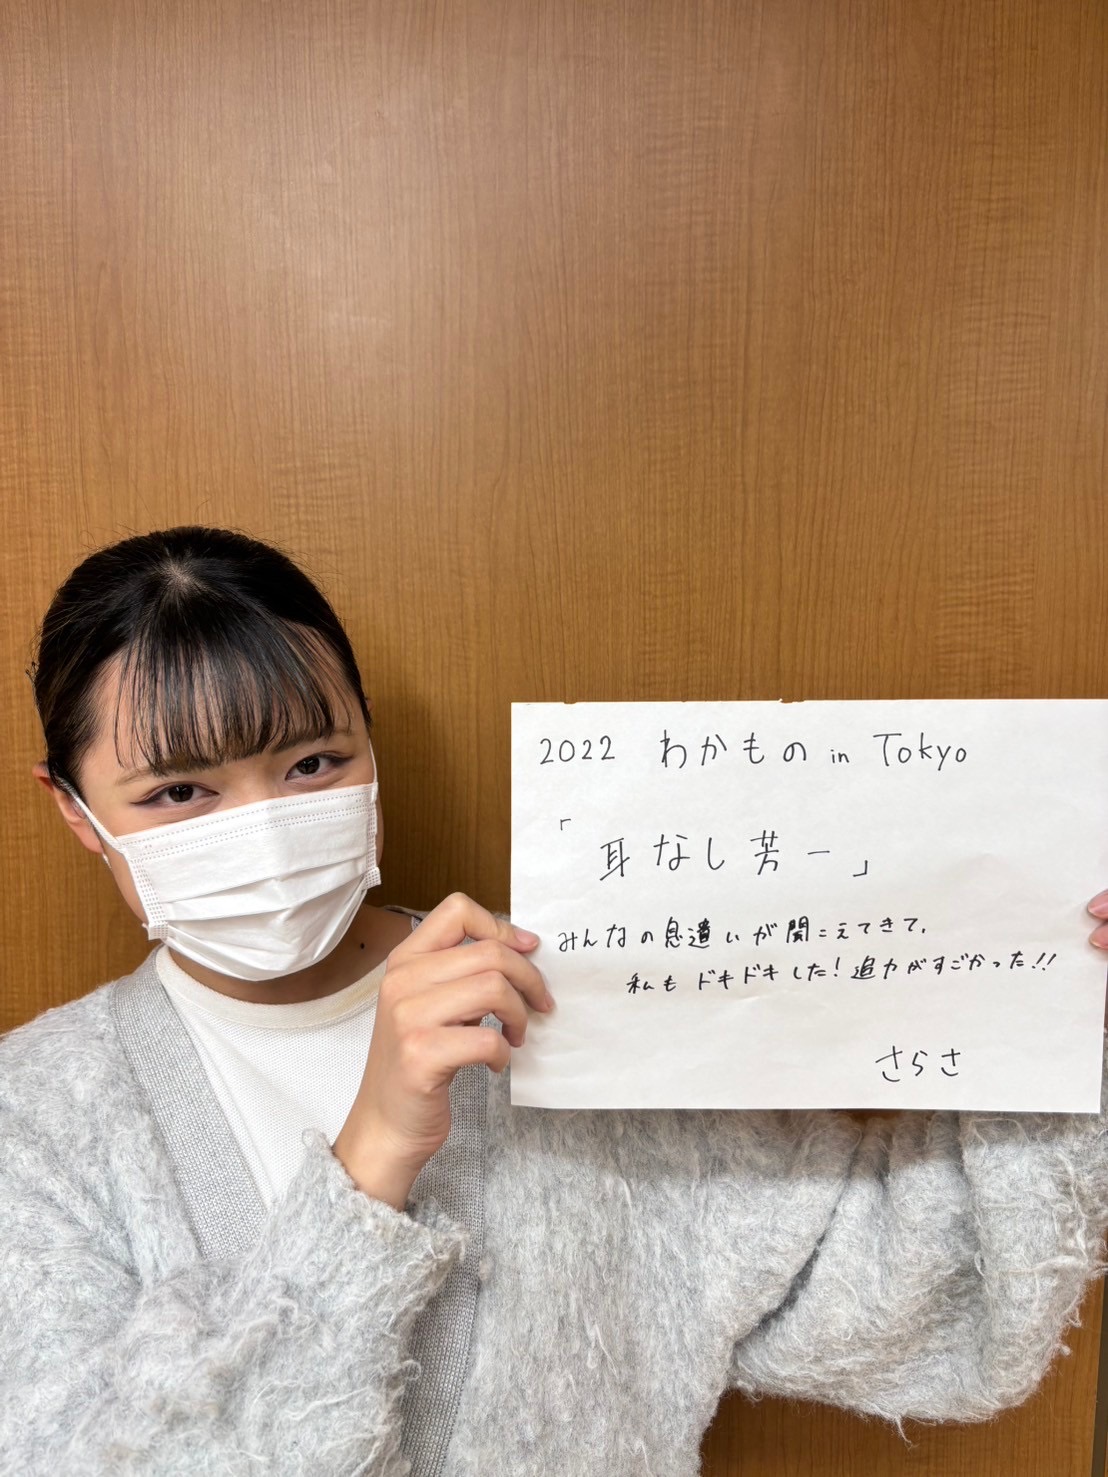 2022 わかもの in Tokyo
「耳なし芳一」
みんなの息遣いが聞こえてきて、
私もドキドキした!迫力がすごかった!!
さらさ